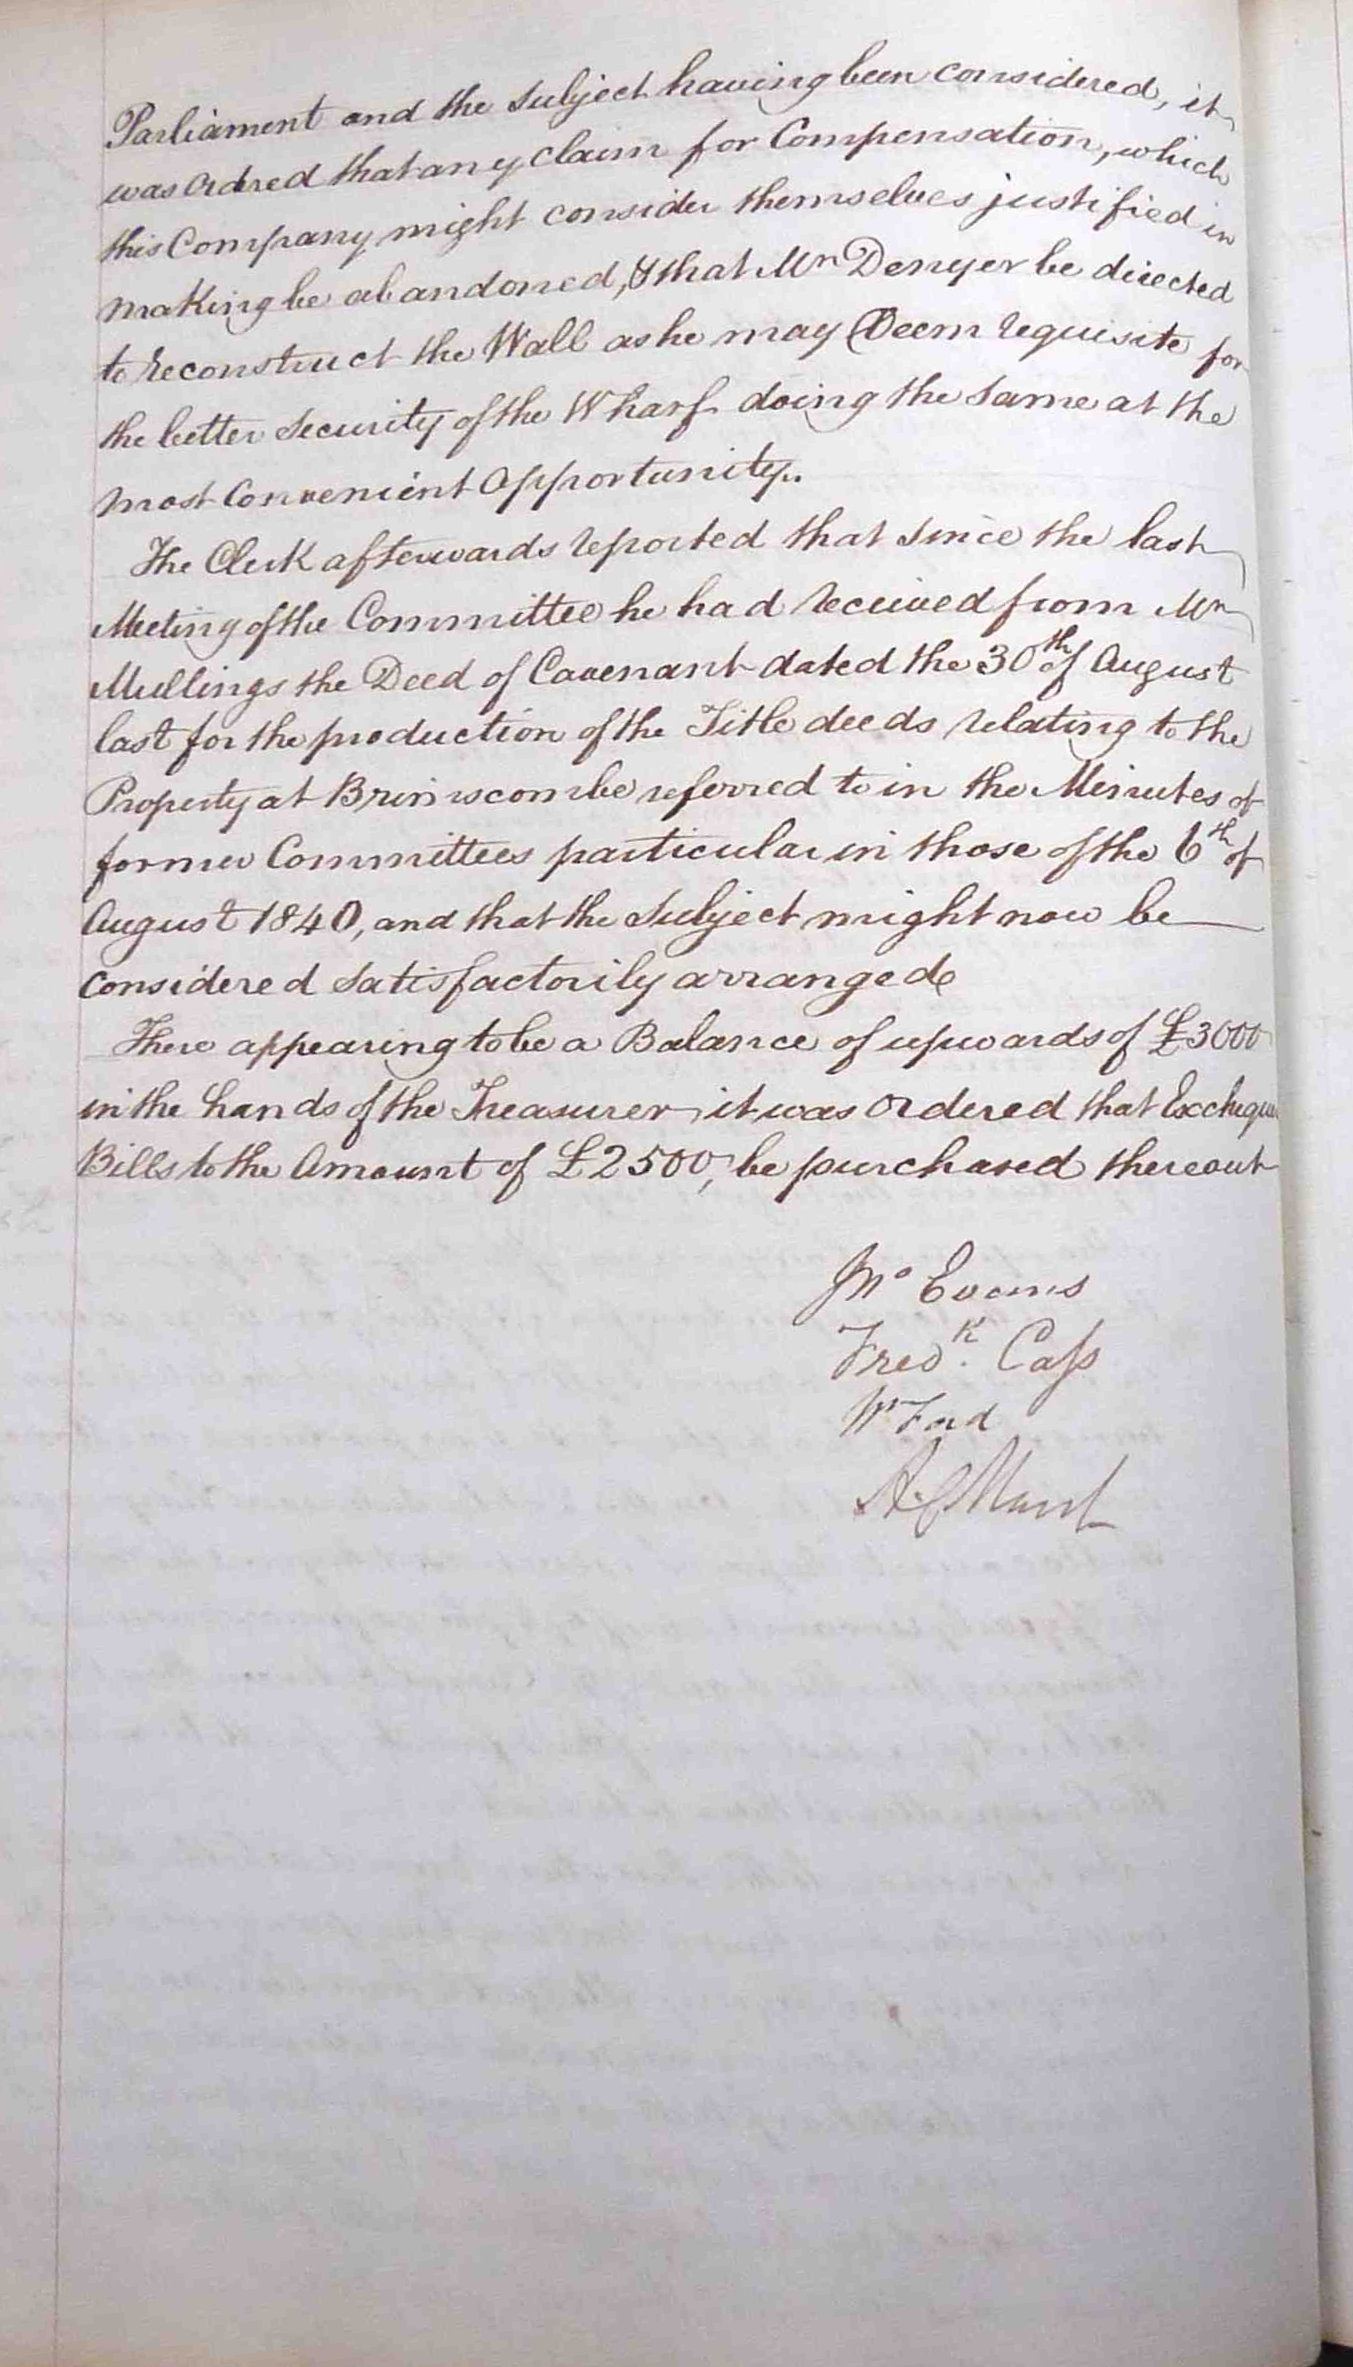 Parliament and the subject having been considered, it
was ordered that any claim for Compensation, which
this Company might consider themselves justified in
making be abandoned, & that Mr Denyer be directed
to reconstruct the Wall as he may Deem requisite for
the better security of the Wharf doing the same at the
most Convenient Opportunity..
The Clerk afterwards reported that since the last
Meeting of the Committee he had received from Mr
Mullings the Deed of Covenant dated the 30th of August
last for the production of the Title deeds relating to the
Property at Brimscombe referred to in the Minutes of
former Committees particular in those of the 6th of
August 1840, and that the subject might now be
considered satisfactorily arranged
There appearing to be a Balance of upwards of £3000
in the hands of the Treasurer it was Ordered that Exchequer
Bills to the Amount of £2500, be purchased thereout
Jno Evans
Fredk. Cass
Wm Ford
A.C.